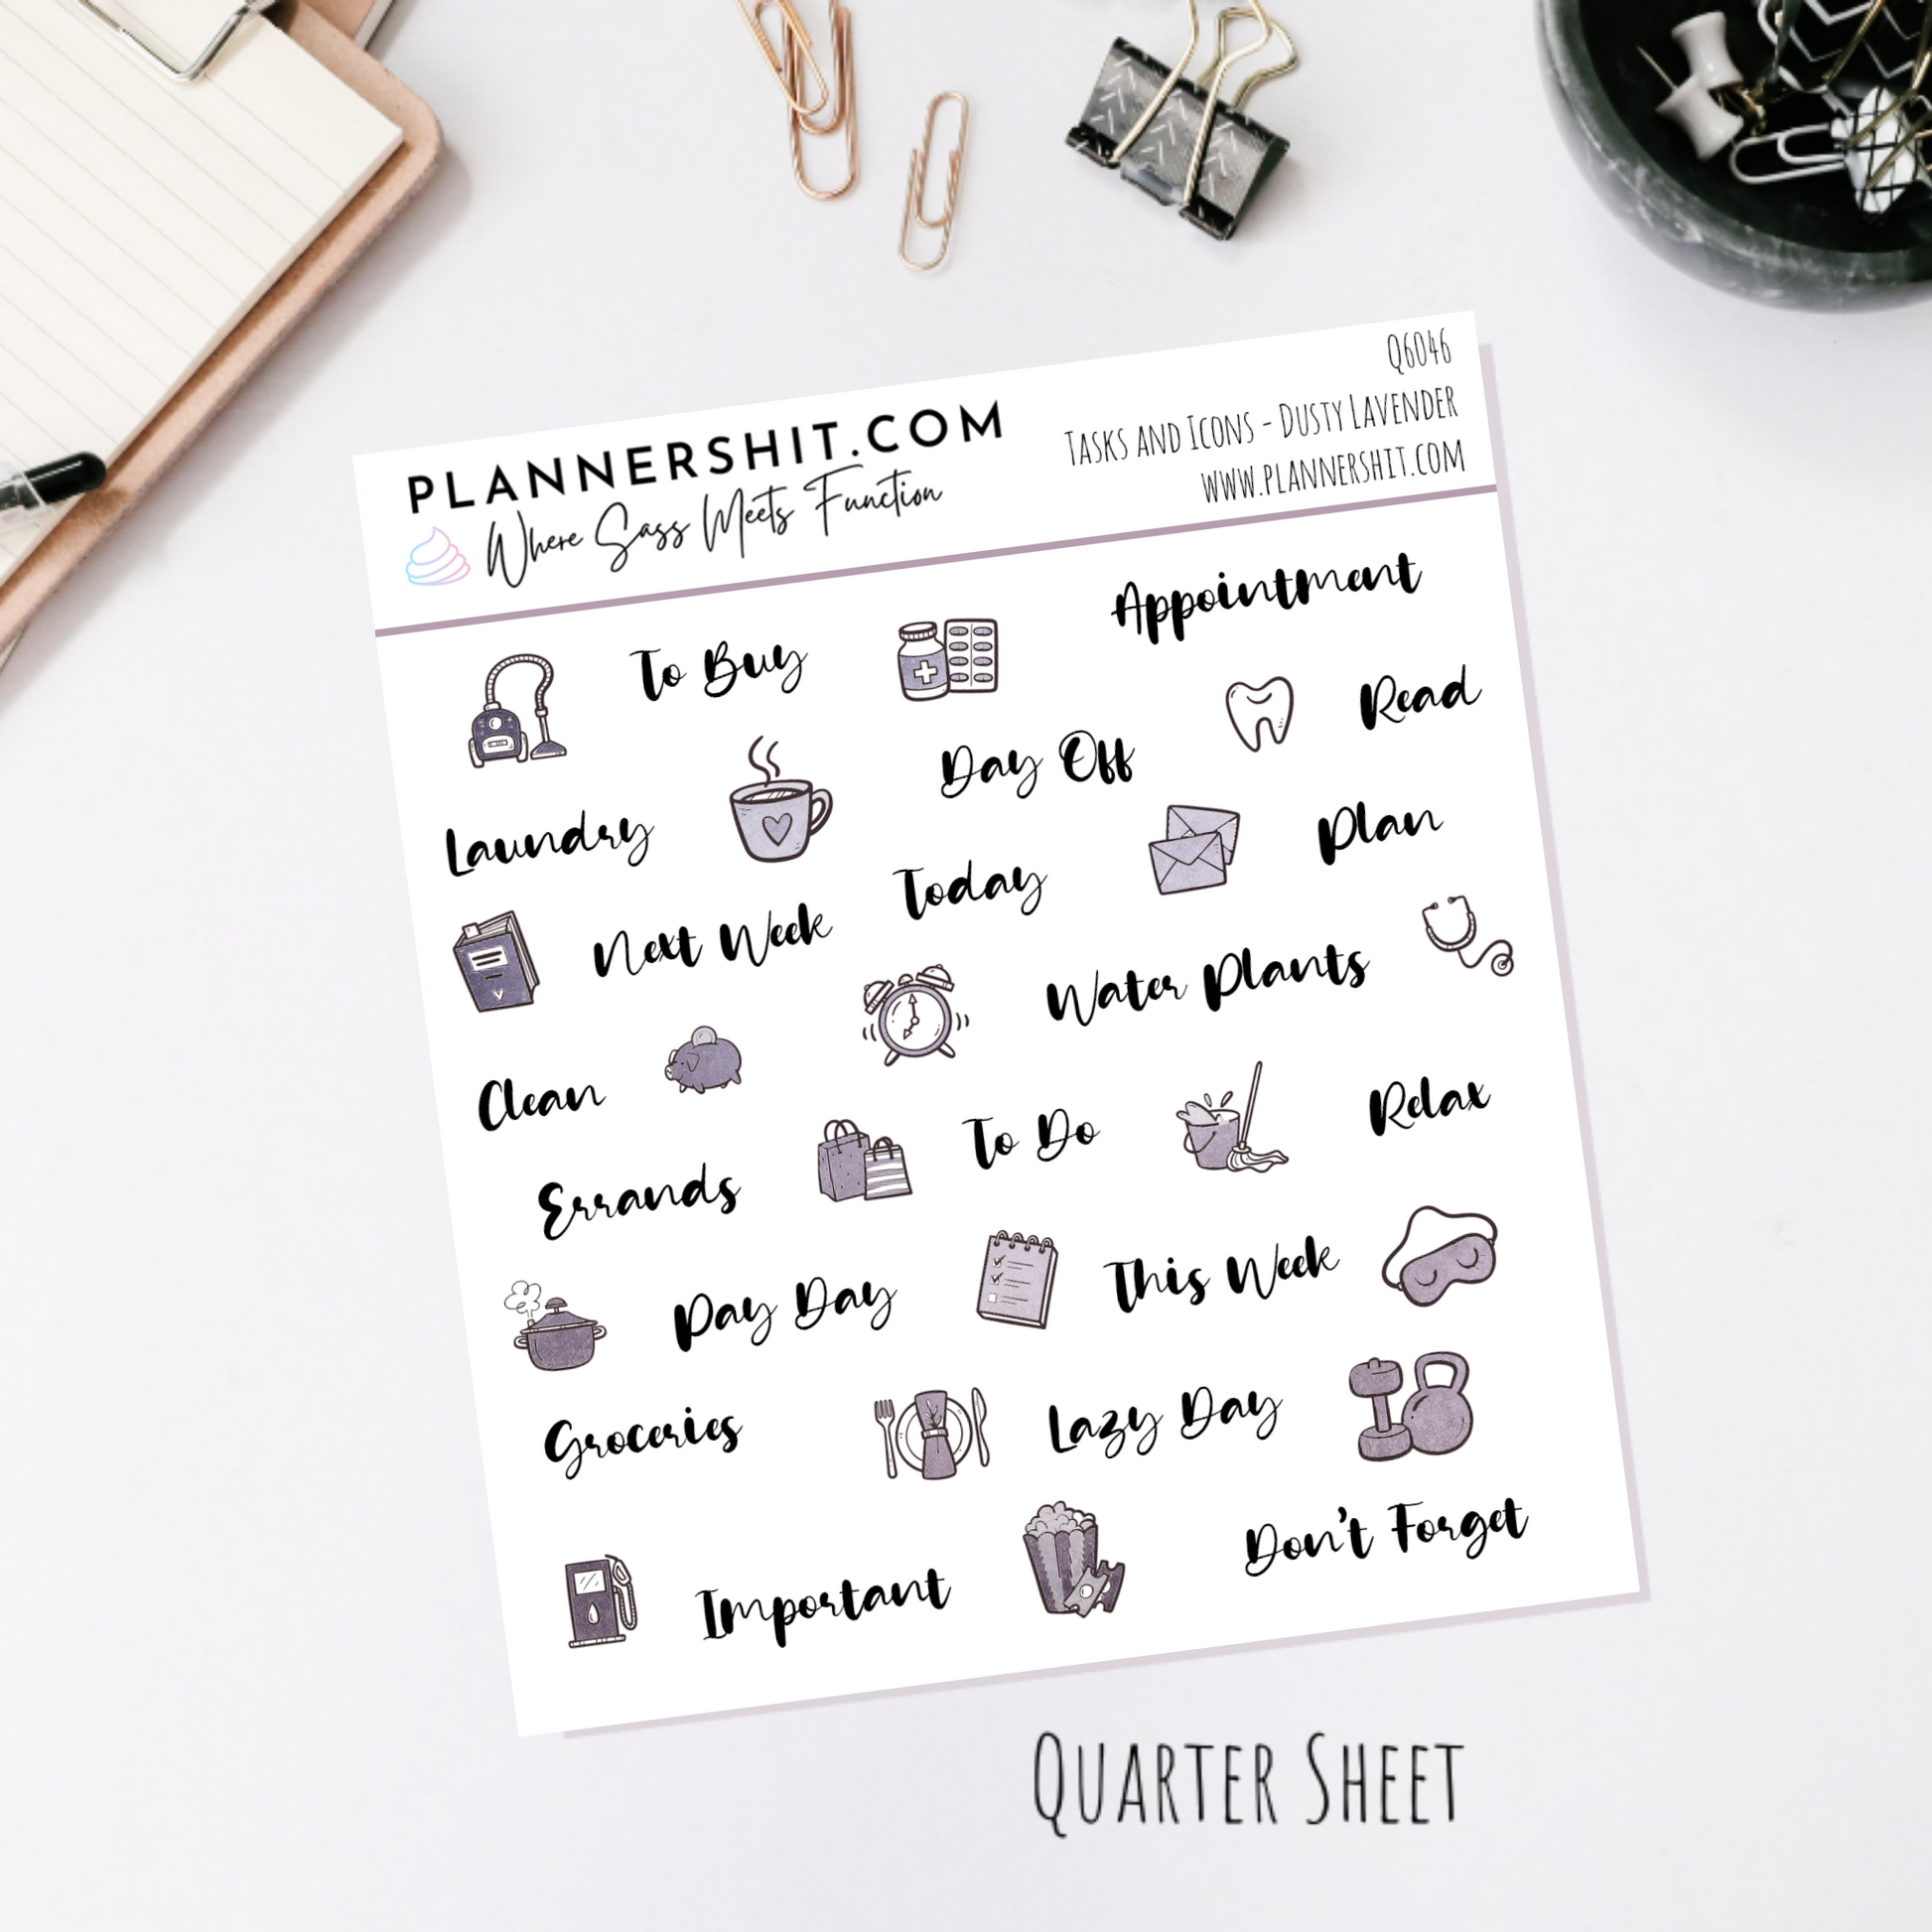 Q6046
PLANNERSHIT.COM
Tasks and Icons - Dusty Lavender
Where Sass Meets Function
www.plannershit.com
Appointment
To Buy
Read
Day Off
Laundry
Plan
Today
Next Week
Water Plants
Clean
Relax
To Do
Errands
This Week
Pay Day
Lazy Day
Groceries
Don't Forget
Important
Quarter Sheet